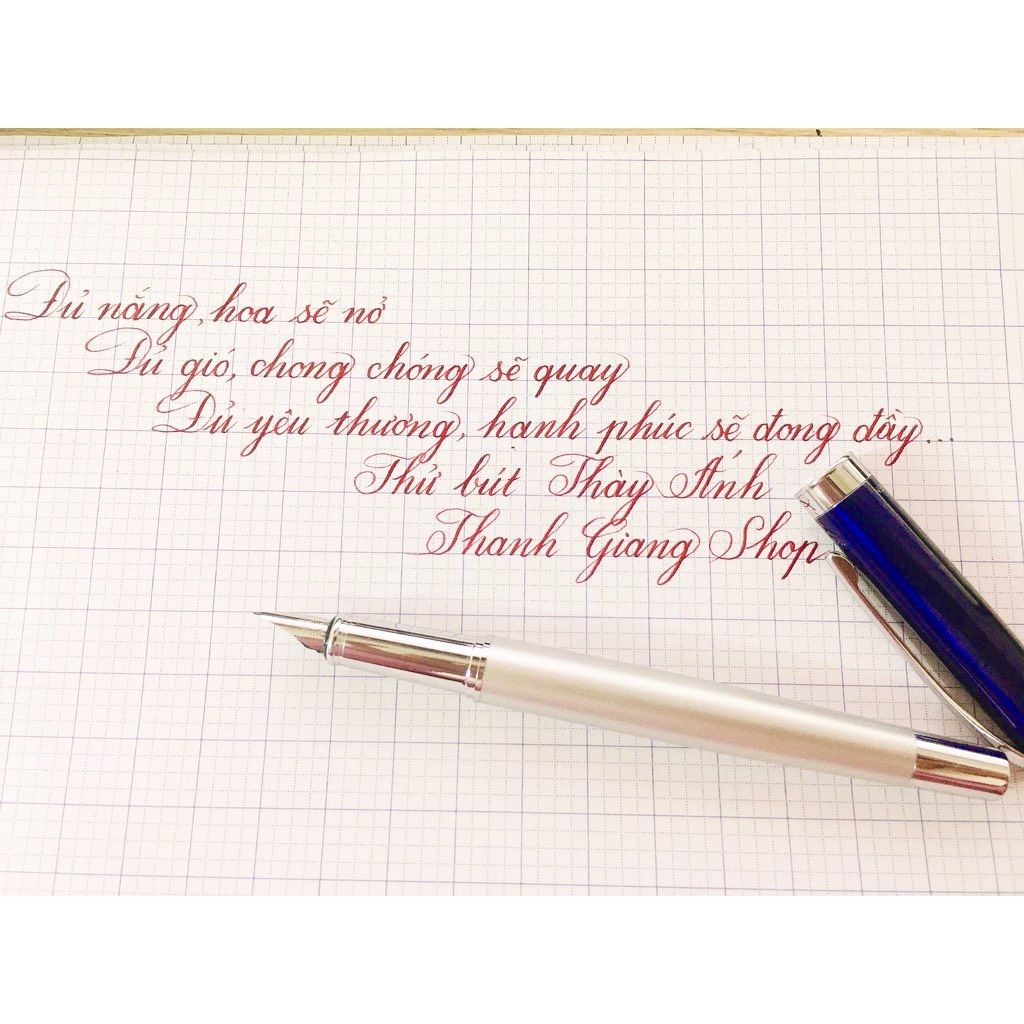 Đủ nắng, hoa sẽ nở
Đủ gió, chong chóng sẽ quay
Đủ yêu thương, hạnh phúc sẽ đong đầy...
Thử bút Thày Ánh
Thanh Giang Shop